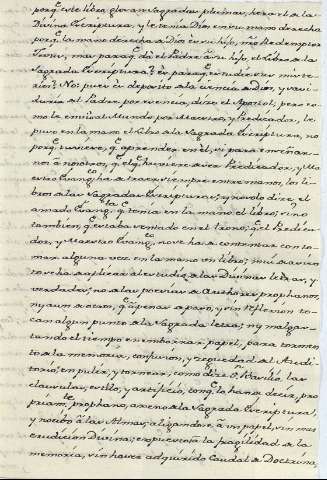 porq̃ este libro, eloran Sagradas plumas, hera el dela
Divina Escriptura, y le tenia Dios en su mano derecha
porq̃ la mano derecha de Dios es su hijo, mi Redemptor
Jesus, mas paraq̃ dà el Padre a su hijo, el libro de la
Sagrada Escriptura? es paraq̃ estudie sus miste-
rios? No: pues es deposito dela ciencia de Dios, y savi-
duria del Padre, por esencia, dice el Apostol, pero co-
mo le embia al Mundo por Maestro, y Predicador, le
puso en la mano el libro dela Sagrada Escriptura, no
porq̃ tuviese, q̃ aprender en el, si para enseñar-
nos a nosotros, q̃ el q̃ huviere de ser Predicador, y Ma-
estro Evangᶜᵒ ha de traer siempre entre manos, los li-
bros delas Sagradas Escripturas; y no solo dice, el
amado Evangᵗᵃ q̃ tenia en la mano el libro, sino
tambien, q̃ estaba sentado en el trono; q̃ el Predica-
dor, y Maestro Evangᶜᵒ, no se ha de contentar con to-
mar alguna vez en la mano un libro; mui de asien-
to se ha de aplicar al estudio delas Divinas letras, y
verdades, no a las poesias de Authores prophanos,
ny aun de otros, q̃ apenas de paso, y sin reflexion to-
can algun punto dela Sagrada letra; ny malgas-
tando el tiempo en emborrar papel, para tormen-
to dela memoria, confusion, y sequedad del Audi-
torio, en pulir, y tornear, como dice Sⁿ Basilio, las
clausulas, estilo, y artificio, conq̃ lo han de decir, pro-
priamᵗᵉ prophano, ageno dela Sagrada Escriptura,
y nocibo a las Almas, aligandose, a un papel, sin mas
erudicion Divina; expuesto a la fragilidad dela
memoria, sin haver adquirido Caudal de Doctrina,